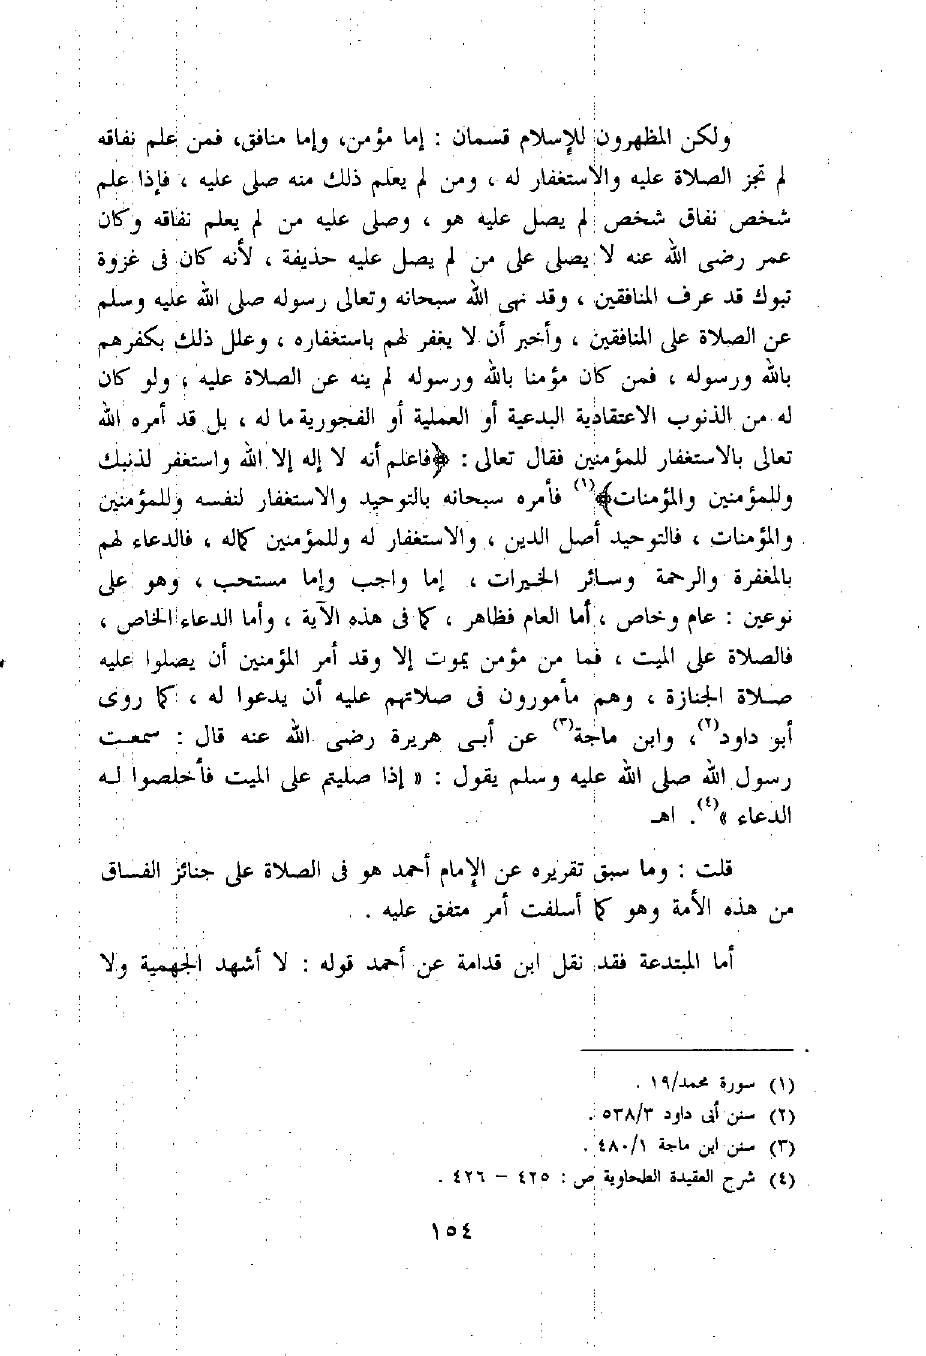 ولكن المظهرون للإسلام قسمان : إما مؤمن، وإما منافق، فمن علم نفاقه
لم تجز الصلاة عليه والاستغفار له ، ومن لم يعلم ذلك منه صلى عليه ، فإذا علم
شخص نفاق شخص لم يصل عليه هو ، وصلى عليه من لم يعلم نفاقه وكان
عمر رضى الله عنه لا يصلى على من لم يصل عليه حذيفة ، لأنه كان فى غزوة
تبوك قد عرف المنافقين ، وقد نهى الله سبحانه وتعالى رسوله صلى الله عليه وسلم
عن الصلاة على المنافقين ، وأخبر أن لا يغفر لهم باستغفاره ، وعلل ذلك بكفرهم
بالله ورسوله ، فمن كان مؤمنا بالله ورسوله لم ينه عن الصلاة عليه ، ولو كان
له من الذنوب الاعتقادية البدعية أو العملية أو الفجورية ما له ، بل قد أمره الله
تعالى بالاستغفار للمؤمنين فقال تعالى : ﴿فاعلم أنه لا إله إلا الله واستغفر لذنبك
وللمؤمنين والمؤمنات﴾(١) فأمره سبحانه بالتوحيد والاستغفار لنفسه وللمؤمنين
والمؤمنات ، فالتوحيد أصل الدين ، والاستغفار له وللمؤمنين كماله ، فالدعاء لهم
بالمغفرة والرحمة وسائر الخيرات ، إما واجب وإما مستحب ، وهو على
نوعين : عام وخاص ، أما العام فظاهر ، كما فى هذه الآية ، وأما الدعاء الخاص ،
فالصلاة على الميت ، فما من مؤمن يموت إلا وقد أمر المؤمنين أن يصلوا عليه
صلاة الجنازة ، وهم مأمورون فى صلاتهم عليه أن يدعوا له ، كما روى
أبو داود(٢)، وابن ماجة(٣) عن أبى هريرة رضى الله عنه قال : سمعت
رسول الله صلى الله عليه وسلم يقول : « إذا صليتم على الميت فأخلصوا له
الدعاء »(٤). اهـ
قلت : وما سبق تقريره عن الإمام أحمد هو فى الصلاة على جنائز الفساق
من هذه الأمة وهو كما أسلفت أمر متفق عليه .
أما المبتدعة فقد نقل ابن قدامة عن أحمد قوله : لا أشهد الجهمية ولا
(١) سورة محمد/١٩ .
(٢) سنن أبى داود ٥٣٨/٣ .
(٣) سنن ابن ماجة ٤٨٠/١ .
(٤) شرح العقيدة الطحاوية ص : ٤٢٥ – ٤٢٦ .
١٥٤